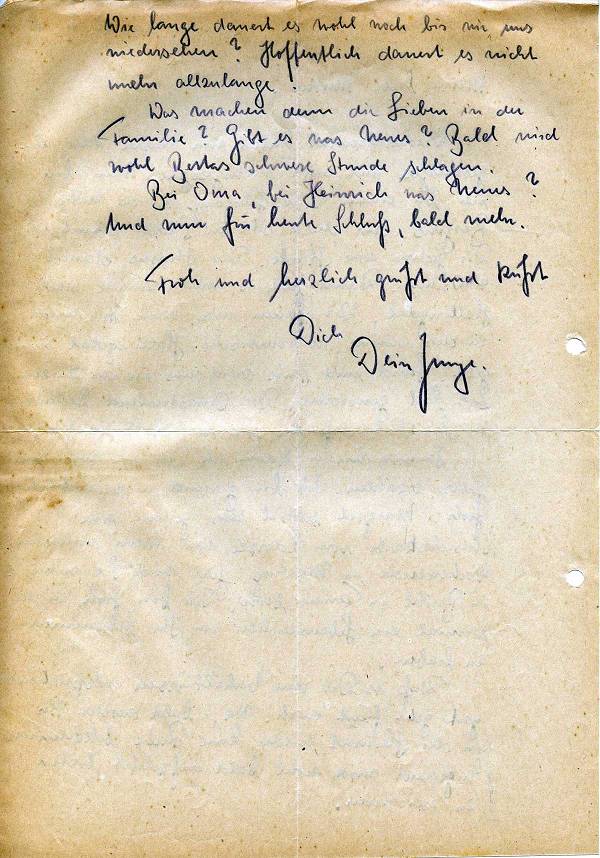 Wie lange dauert es wohl noch bis wir uns
wiedersehen? Hoffentlich dauert es nicht
mehr allzulange.
Was machen denn die Lieben in der
Familie? Gibt es was Neues? Bald wird
wohl Bertas schwere Stunde schlagen.
Bei Oma, bei Heinrich was Neues?
Und nun für heute Schluß, bald mehr.
Froh und herzlich grüßt und küßt
Dich
Dein Junge.